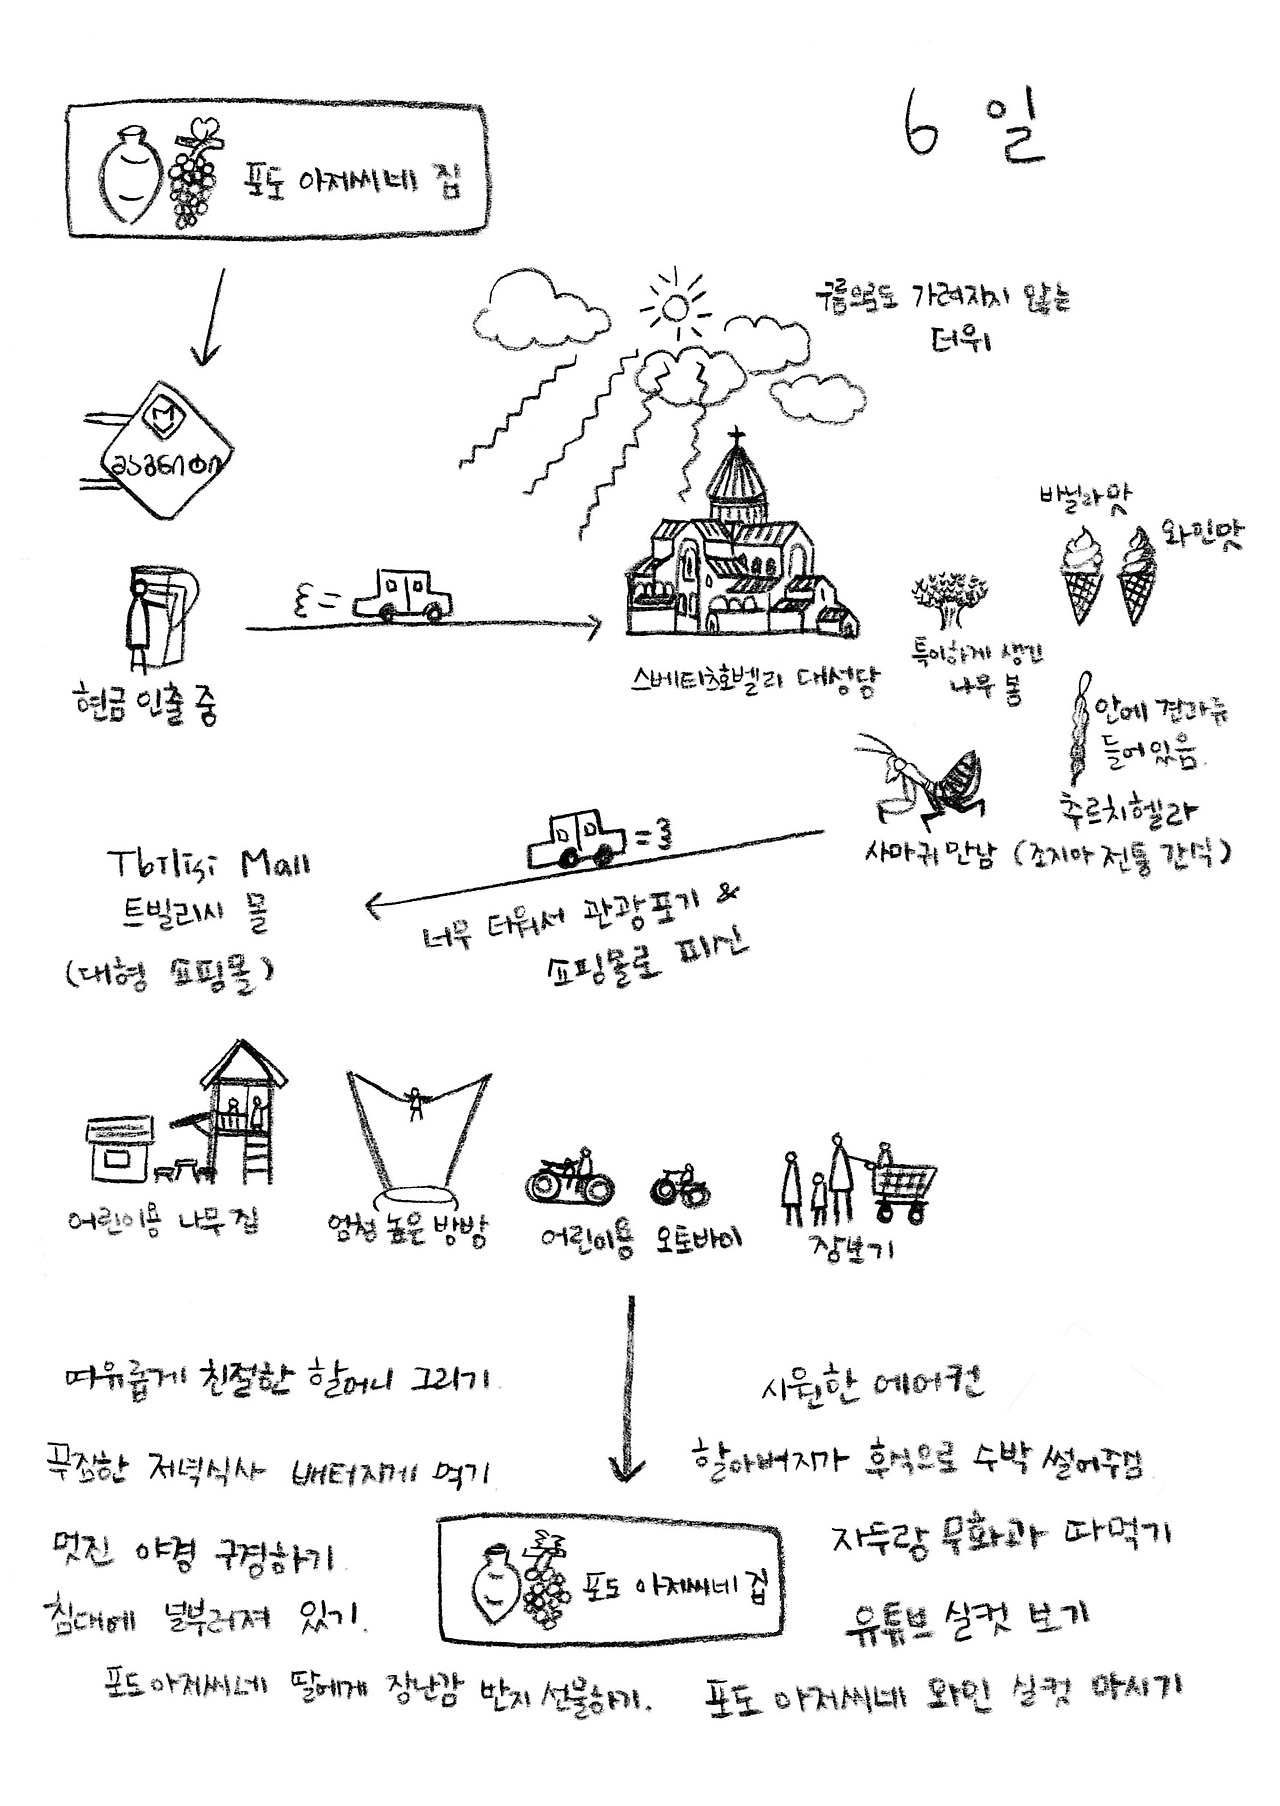 6일
포도 아저씨네 집
구름으로도 가려지지 않는
더위
M
მაგნიტი
바닐라맛
와인맛
현금 인출 중
스베티츠호벨리 대성당
특이하게 생긴
나무 봄
안에 견과류
들어있음.
츄르치헬라
(조지아 전통 간식)
사마귀 만남
Tbilisi Mall
트빌리시 몰
(대형 쇼핑몰)
너무 더워서 관광포기 &
쇼핑몰로 피신
어린이용 나무 집
엄청 높은 방방
어린이용 오토바이
장보기
따유롭게 친절한 할머니 그리기
시원한 에어컨
푸짐한 저녁식사 배터지게 먹기
할아버지가 후식으로 수박 썰어주심
멋진 야경 구경하기
자두랑 무화과 따먹기
포도 아저씨네 집
침대에 널부러져 있기.
유튜브 실컷 보기
포도아저씨네 딸에게 장난감 반지 선물하기.
포도 아저씨네 와인 실컷 마시기